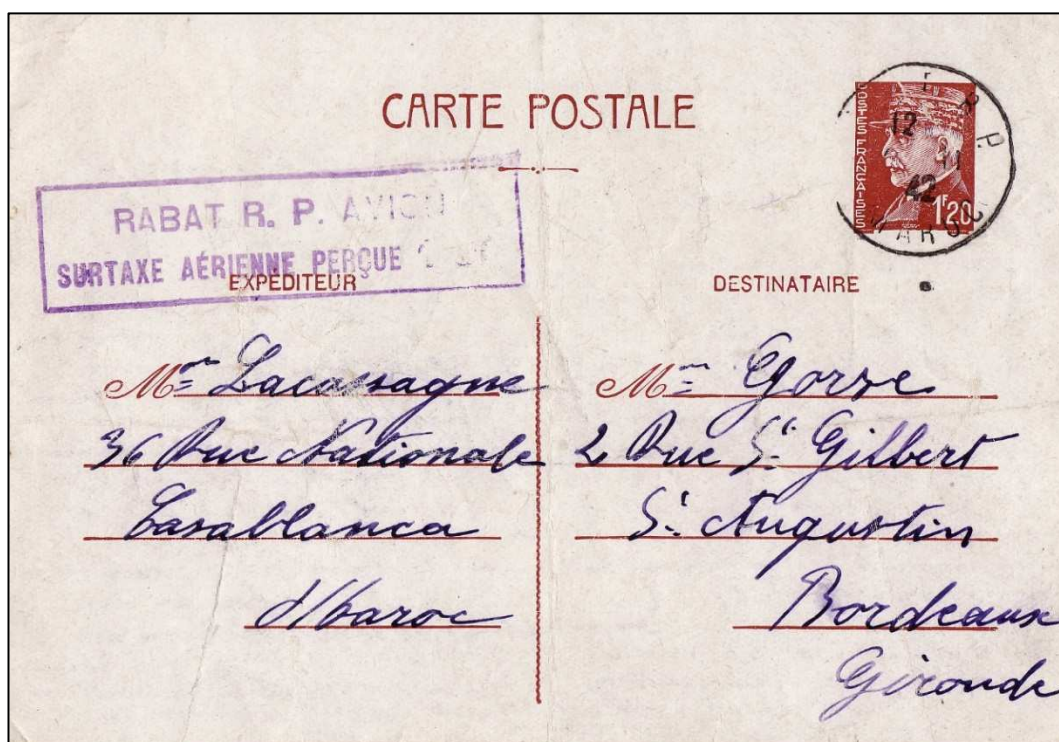 CARTE POSTALE
POSTES FRANÇAISES
1F20
R. P.
12
42
MAROC
RABAT R. P. AVION
SURTAXE AÉRIENNE PERÇUE
EXPÉDITEUR
DESTINATAIRE
Mme Lacassagne
36 Rue Nationale
Casablanca
Maroc
Mme Gorse
2 Rue St Gilbert
St Augustin
Bordeaux
Gironde